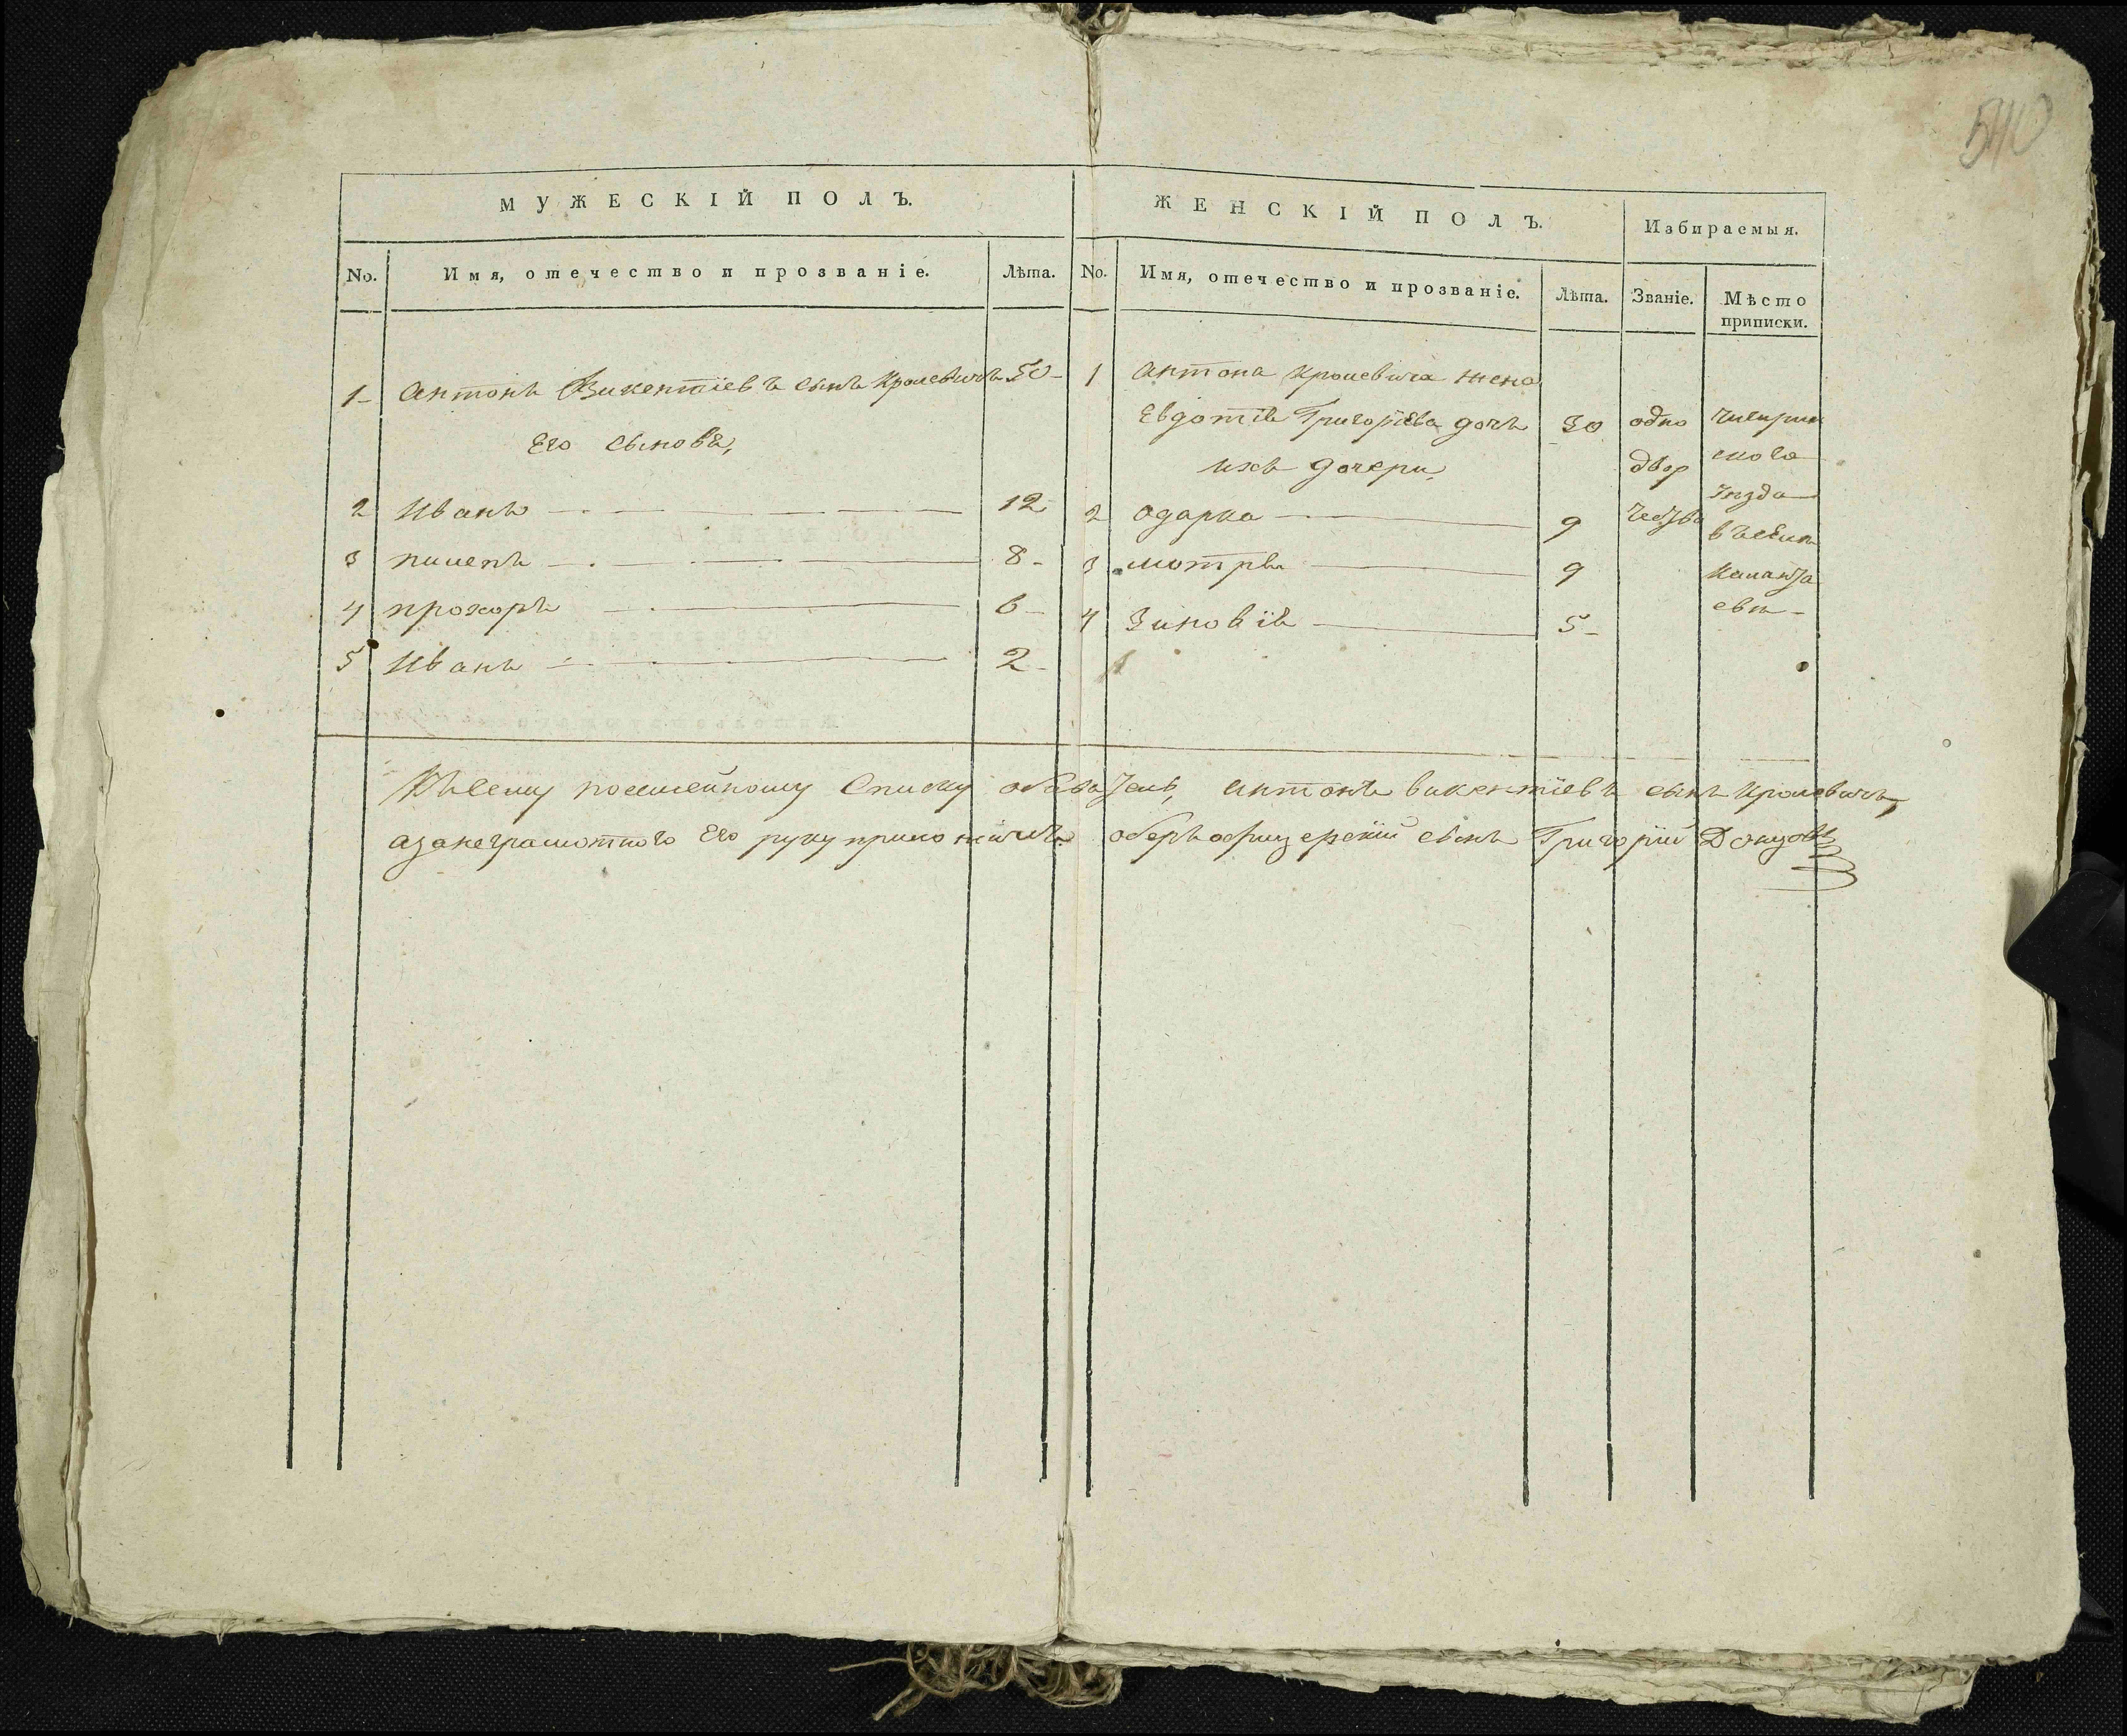 540
МУЖЕСКІЙ ПОЛЪ.
ЖЕНСКІЙ ПОЛЪ.
Избираемыя.
No.
Имя, отечество и прозваніе.
Лѣта.
No.
Имя, отечество и прозваніе.
Лѣта.
Званіе.
Мѣсто
приписки.
1 Антонъ Викентіевъ сынъ Кролевичъ 50
Его сыновя,
2 Иванъ 12
3 пилепъ 8
4 прохоръ 6
5 Иванъ 2
1 Антона Кролевича жена
Евдотія Григоріева дочь 30
ихъ дочери,
2 одарка 9
3 мотря 9
4 Зиновія 5
одно
двор
чигирин
ского
уезда
Къ сему посемейному Списку Антонъ викентіевъ сынъ Кролевичъ,
а за неграмотного Его руку приложилъ оберъ офицерскій сынъ Григорій